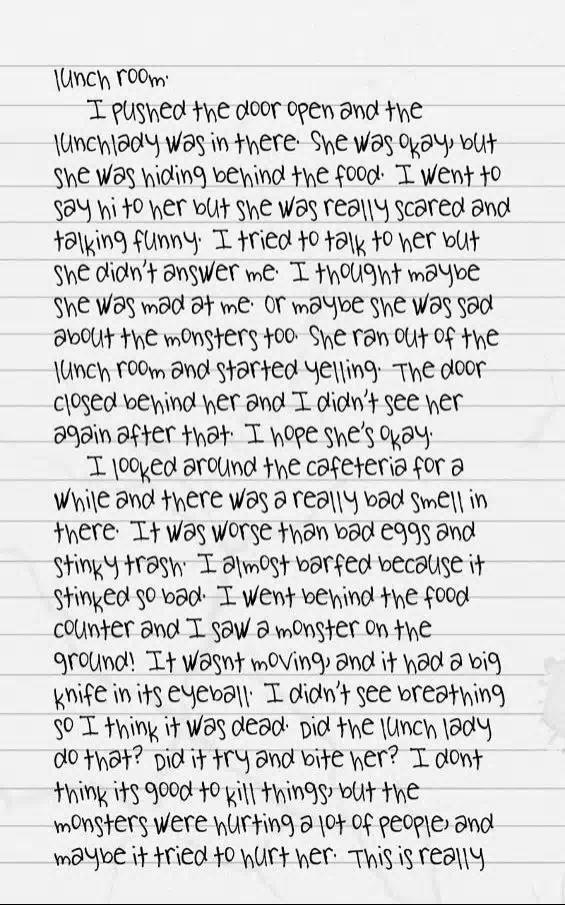 lunch room.
I pushed the door open and the
lunchlady was in there. She was okay, but
she was hiding behind the food. I went to
say hi to her but she was really scared and
talking funny. I tried to talk to her but
she didn't answer me. I thought maybe
she was mad at me. Or maybe she was sad
about the monsters too. She ran out of the
lunch room and started yelling. The door
closed behind her and I didn't see her
again after that. I hope she's okay.
I looked around the cafeteria for a
while and there was a really bad smell in
there. It was worse than bad eggs and
stinky trash. I almost barfed because it
stinked so bad. I went behind the food
counter and I saw a monster on the
ground! It wasnt moving, and it had a big
knife in its eyeball. I didn't see breathing
so I think it was dead. Did the lunch lady
do that? Did it try and bite her? I dont
think its good to kill things, but the
monsters were hurting a lot of people, and
maybe it tried to hurt her. This is really